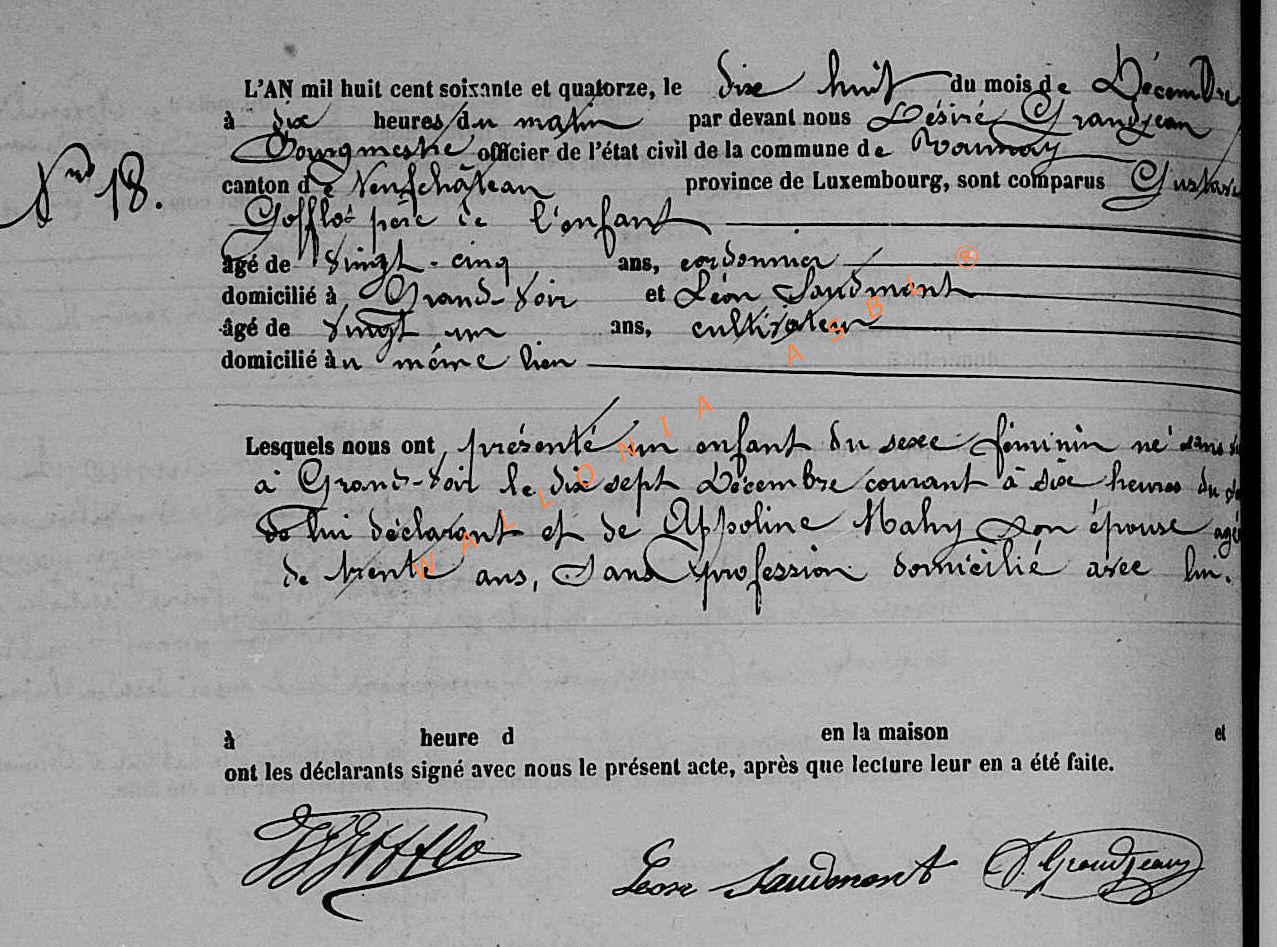 L'AN mil huit cent soixante et quatorze, le dix huit du mois de Décembre
à dix heures du matin par devant nous Désiré Grandjean
Bourgmestre officier de l'état civil de la commune de
canton de Neufchâteau province de Luxembourg, sont comparus Gustave
N° 18.
Gofflot père de l'enfant
âgé de vingt-cinq ans, cordonnier
domicilié à Grand-Voir et Léon Saudmont
âgé de vingt un ans, cultivateur
domicilié à u même lieu
Lesquels nous ont présenté un enfant du sexe féminin né sans
à Grand-Voir le dix sept Décembre courant à six heures du
de lui déclarant et de Appoline Mahy son épouse agé
de trente ans, sans profession domicilié avec lui.
WALLONIA ASBL ®
à heure d en la maison et
ont les déclarants signé avec nous le présent acte, après que lecture leur en a été faite.
Gofflo Léon Saudmont D. Grandjean